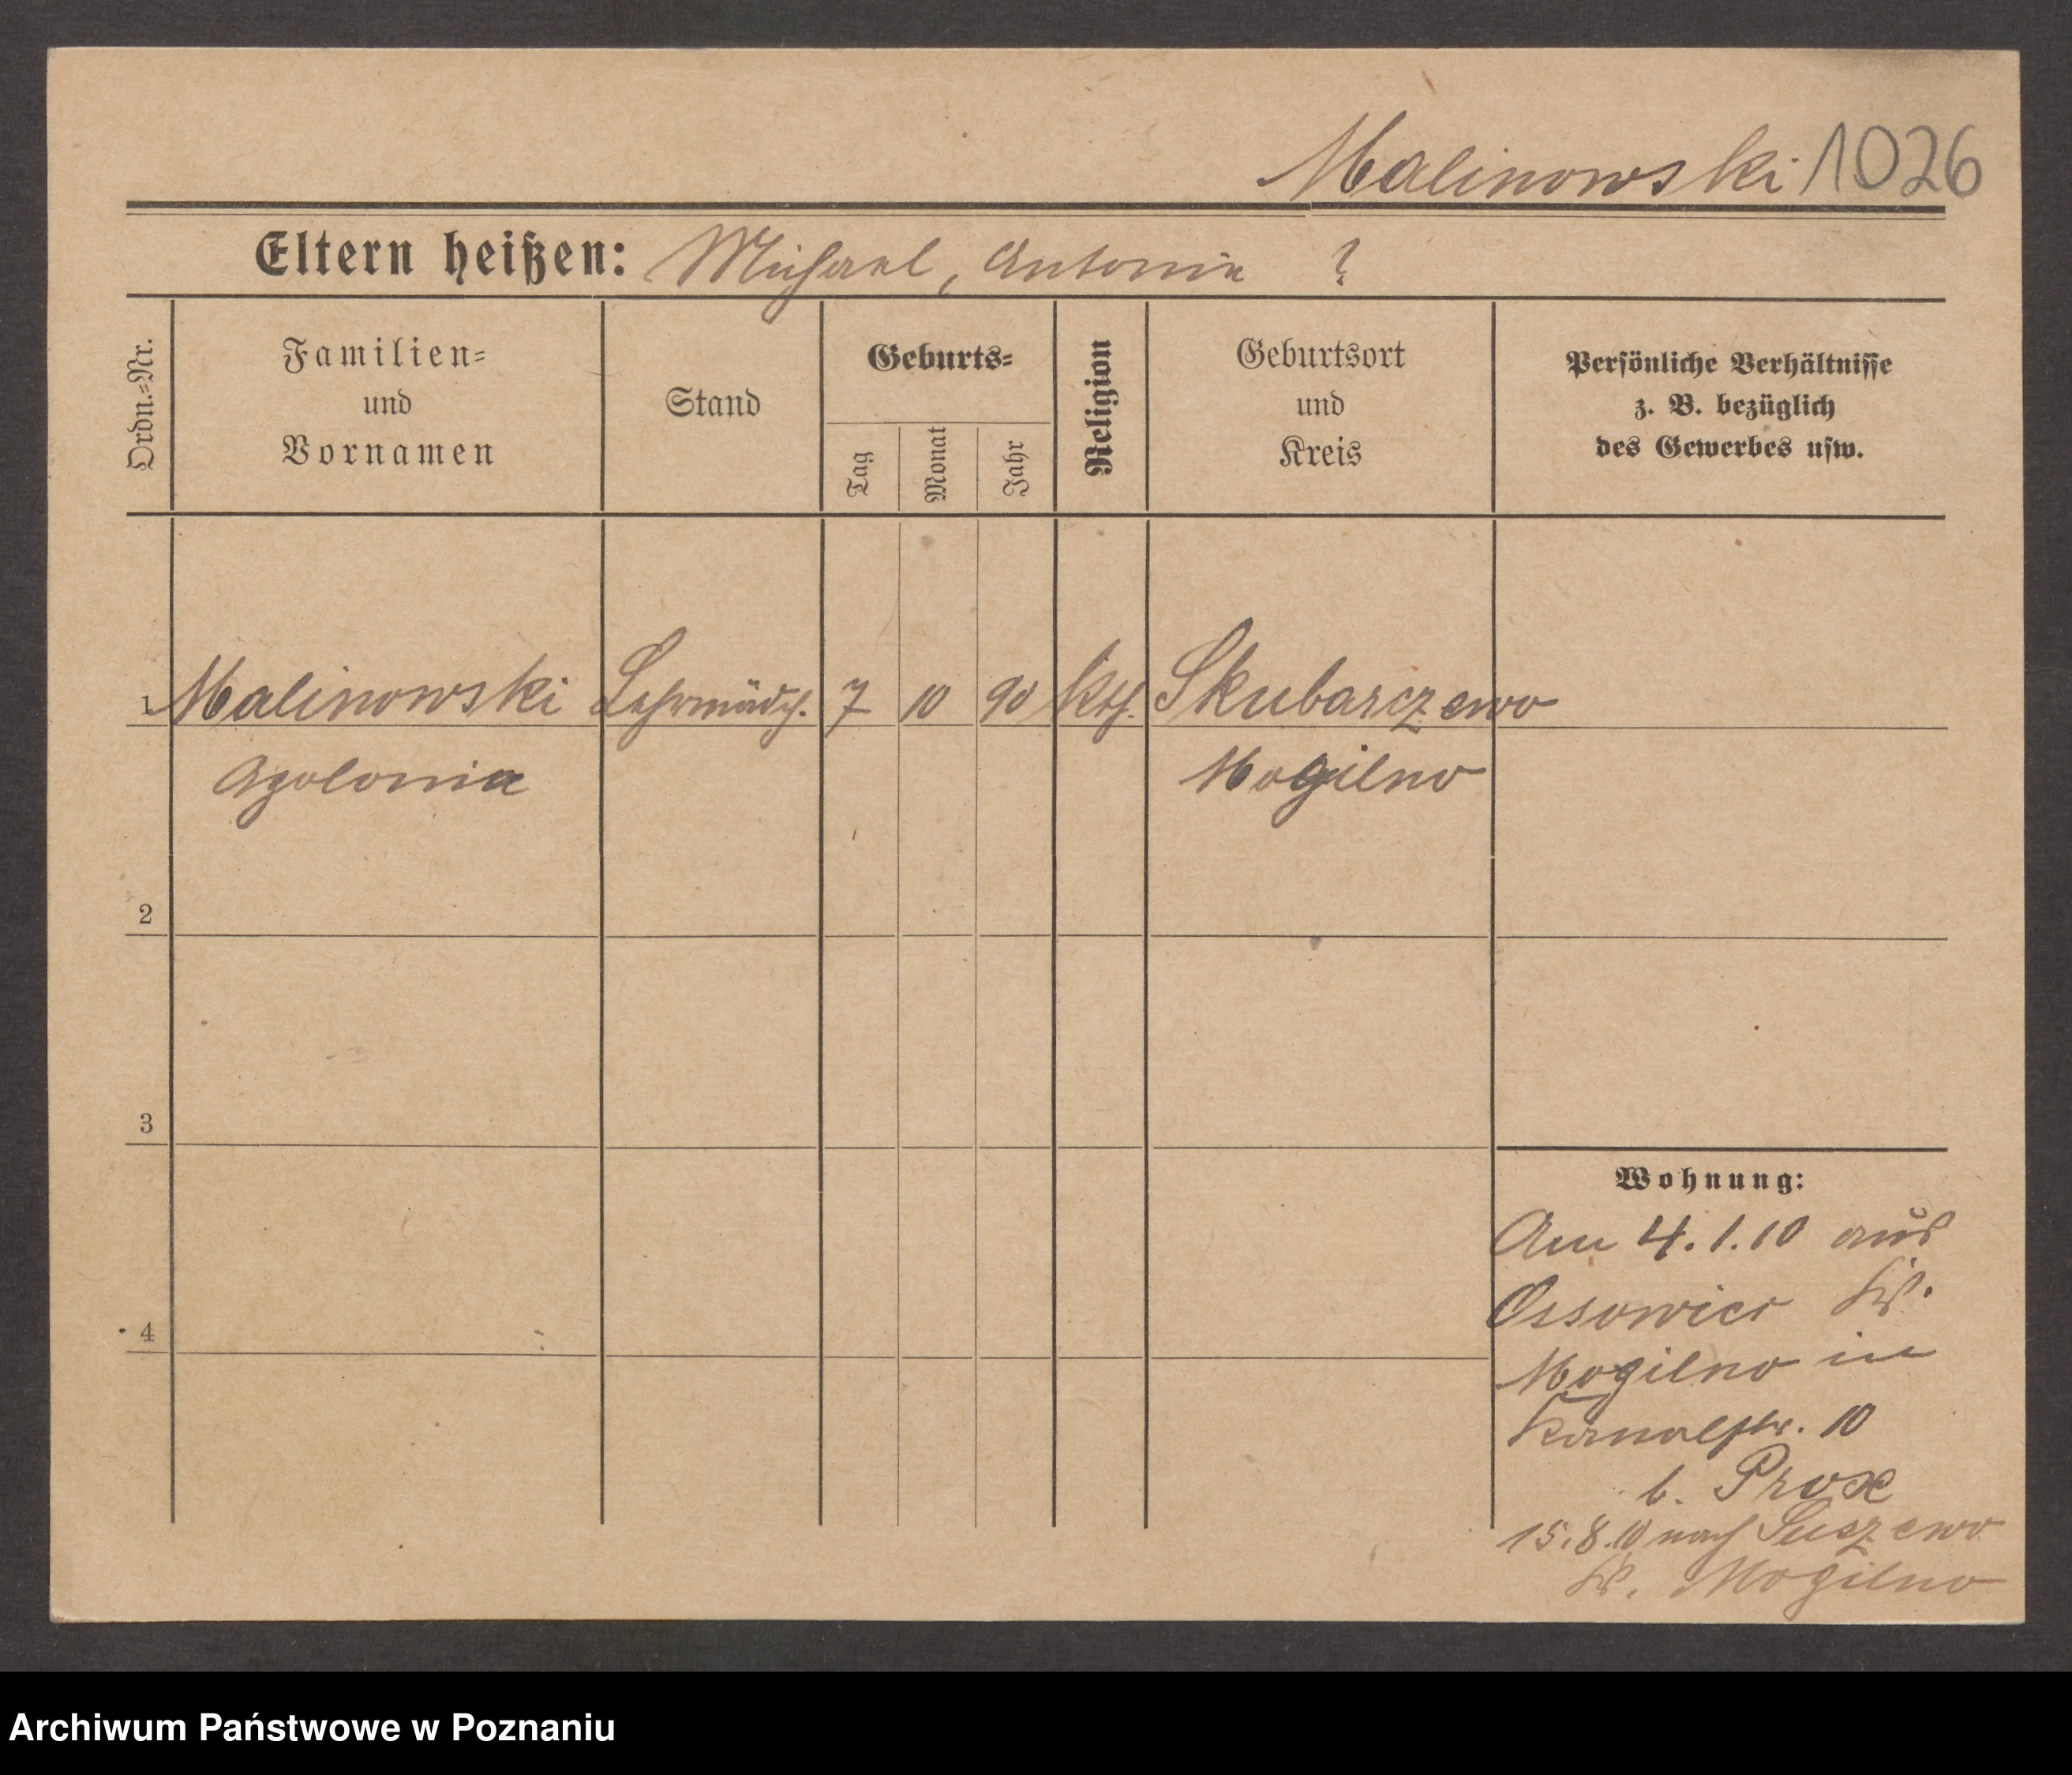 Malinowski 1026
Eltern heißen: Michael, Antonia ?
Ordn.-Nr.
Familien-
und
Vornamen
Stand
Geburts-
Tag
Monat
Jahr
Religion
Geburtsort
und
Kreis
Persönliche Verhältnisse
z. B. bezüglich
des Gewerbes usw.
1 Malinowski Lehrmädch. 7 10 90 kth. Skubarczewo
Apolonia Mogilno
2
3
4
Wohnung:
Am 4.1.10 aus
Ossowiec Kr.
Mogilno in
Kanalstr. 10
b. Prox
15.8.10 nach Suszewo
Kr. Mogilno
Archiwum Państwowe w Poznaniu